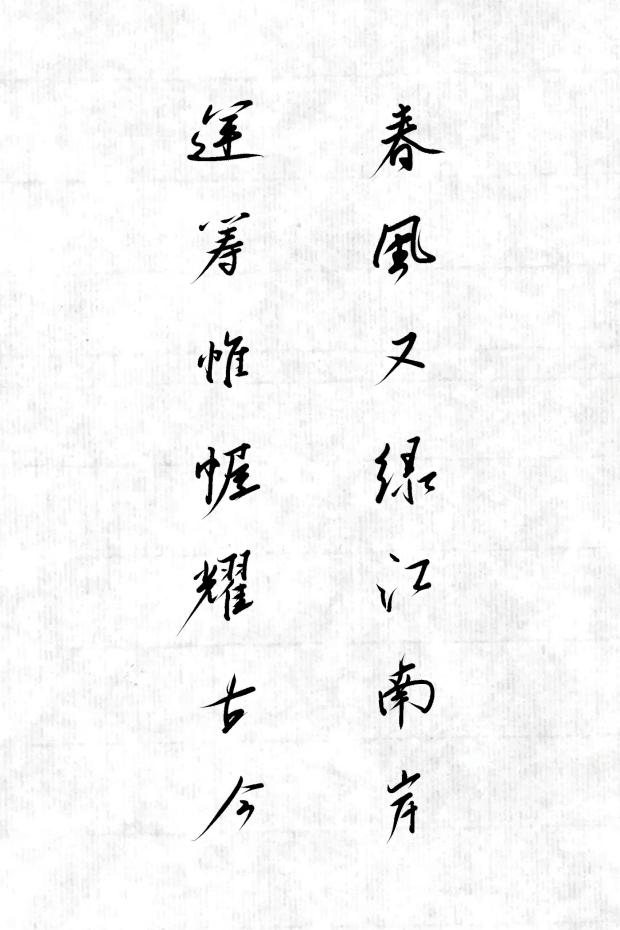 春風又绿江南岸
運筹帷幄耀古今